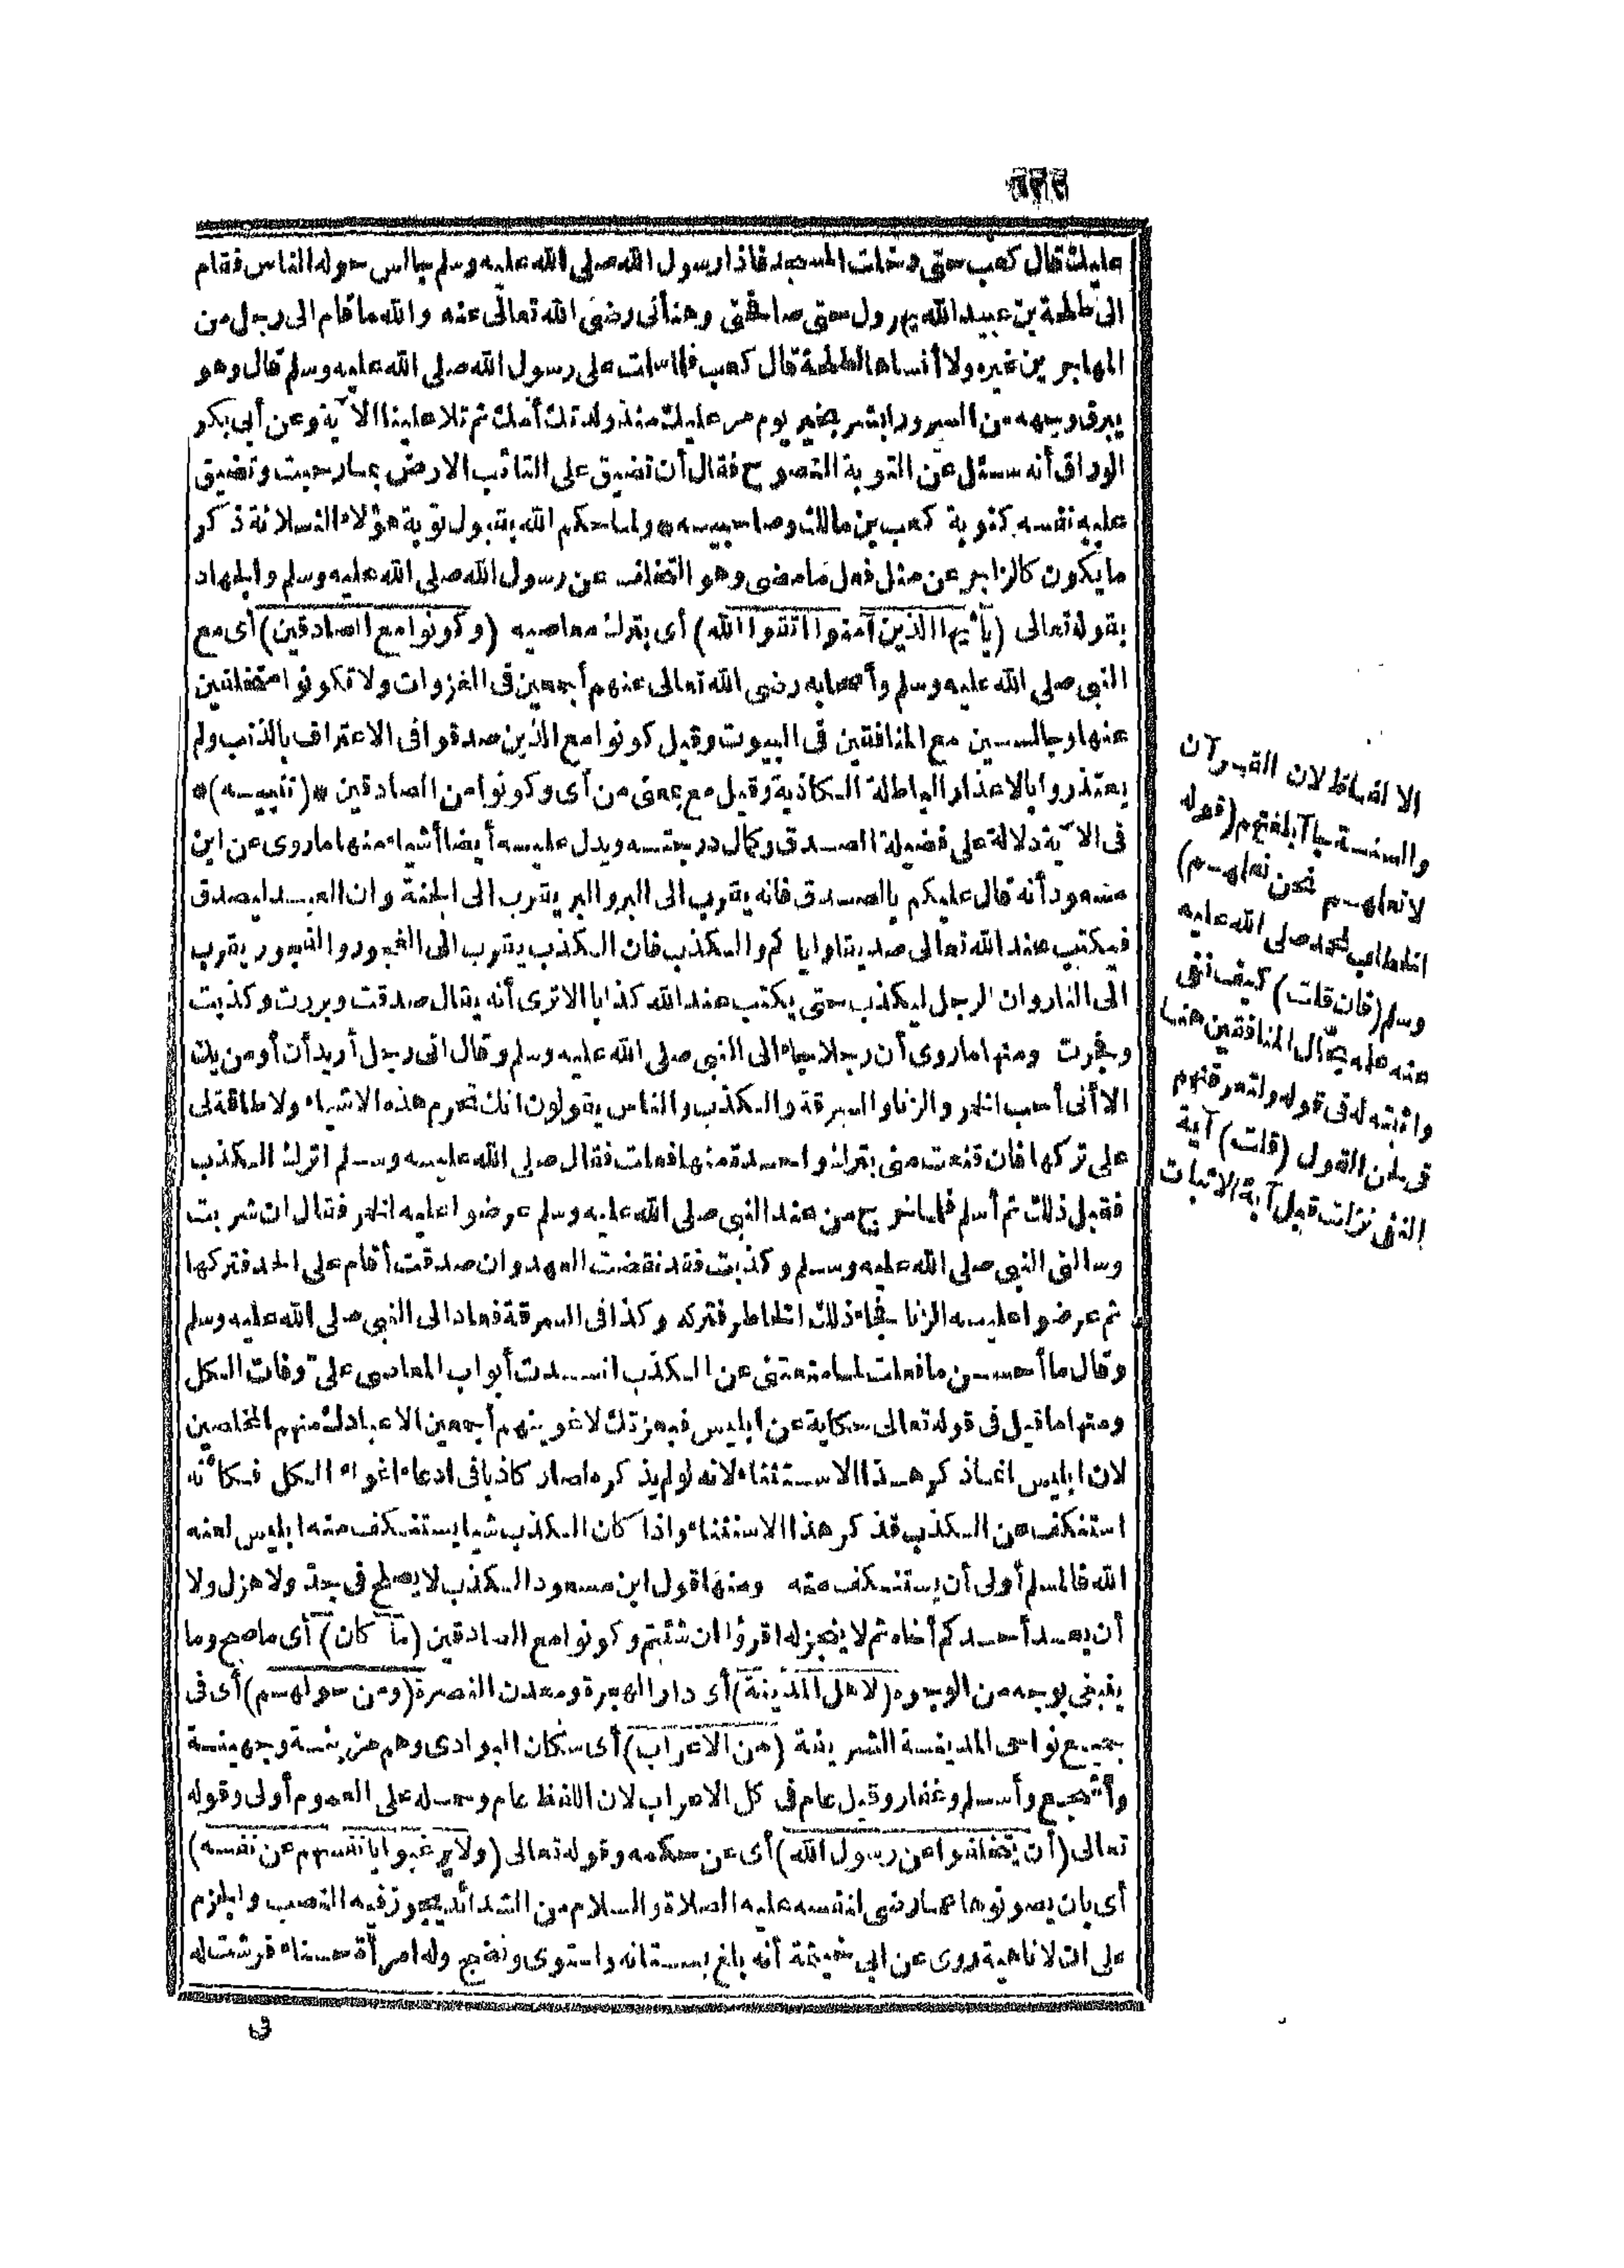 عليك قال كعب حتى دخلت المسجد فاذا رسول الله صلى الله عليه وسلم جالس حوله الناس فقام
الى طلحة بن عبيد الله يهرول حتى صافحنى وهنأنى رضى الله تعالى عنه والله ما قام الى رجل من
المهاجرين غيره ولا أنساها لطلحة قال كعب فلما سلمت على رسول الله صلى الله عليه وسلم قال وهو
يبرق وجهه من السرور ابشر بخير يوم مر عليك منذ ولدتك أمك ثم تلا علينا الآية وعن أبى بكر
الوراق أنه سئل عن التوبة النصوح فقال أن تضيق على التائب الارض بما رحبت وتضيق
عليه نفسه كتوبة كعب بن مالك وصاحبيه * ولما حكم الله بقبول توبة هؤلاء الثلاثة ذكر
ما يكون كالزاجر عن مثل فعل ما مضى وهو التخلف عن رسول الله صلى الله عليه وسلم والجهاد
بقوله تعالى (يأيها الذين آمنوا اتقوا الله) أى بترك معاصيه (وكونوا مع الصادقين) أى مع
النبى صلى الله عليه وسلم وأصحابه رضى الله تعالى عنهم أجمعين فى الغزوات ولا تكونوا متخلفين
عنها وجالسين مع المنافقين فى البيوت وقيل كونوا مع الذين صدقوا فى الاعتراف بالذنب ولم
يعتذروا بالاعذار الباطلة الكاذبة وقيل مع بمعنى من أى وكونوا من الصادقين * (تنبيه) *
فى الآية دلالة على فضيلة الصدق وكمال درجته ويدل عليه أيضا أشياء منها ما روى عن ابن
مسعود أنه قال عليكم بالصدق فانه يقرب الى البر والبر يقرب الى الجنة وان العبد ليصدق
فيكتب عند الله تعالى صديقا واياكم والكذب فان الكذب يقرب الى الفجور والفجور يقرب
الى النار وان الرجل ليكذب حتى يكتب عند الله كذابا الا ترى أنه يقال صدقت وبررت وكذبت
وفجرت ومنها ما روى أن رجلا جاء الى النبى صلى الله عليه وسلم وقال انى رجل أريد أن أومن بك
الا أنى أحب الخمر والزنا والسرقة والكذب والناس يقولون انك تحرم هذه الاشياء ولا طاقة لى
على تركها فان قنعت منى بترك واحدة منها فعلت فقال صلى الله عليه وسلم اترك الكذب
فقبل ذلك ثم أسلم فلما خرج من عند النبى صلى الله عليه وسلم عرضوا عليه الخمر فقال ان شربت
وسالنى النبى صلى الله عليه وسلم وكذبت فقد نقضت العهد وان صدقت أقام على الحد فتركها
ثم عرضوا عليه الزنا فجاء ذلك الخاطر فتركه وكذا فى السرقة فعاد الى النبى صلى الله عليه وسلم
وقال ما أحسن ما فعلت لما منعتنى عن الكذب انسدت أبواب المعاصى على وفات الكل
ومنها ما قيل فى قوله تعالى حكاية عن ابليس فبعزتك لاغوينهم أجمعين الا عبادك منهم المخلصين
لان ابليس انما ذكر هذا الاستثناء لانه لو لم يذكره لصار كاذبا فى ادعاء اغواء الكل فكأنه
استنكف عن الكذب فذكر هذا الاستثناء واذا كان الكذب شيا يستنكف منه ابليس لعنه
الله فالمسلم أولى أن يستنكف منه ومنها قول ابن مسعود الكذب لا يصلح فى جد ولا هزل ولا
أن يعد أحدكم أخاه ثم لا ينجز له اقرؤا ان شئتم وكونوا مع الصادقين (ما كان) أى ما صح وما
ينبغى بوجه من الوجوه (لاهل المدينة) أى دار الهجرة ومعدن النصرة (ومن حولهم) أى فى
جميع نواحى المدينة الشريفة (من الاعراب) أى سكان البوادى وهم مزينة وجهينة
وأشجع وأسلم وغفار وقيل عام فى كل الاعراب لان اللفظ عام وحمله على العموم أولى وقوله
تعالى (أن يتخلفوا عن رسول الله) أى عن حكمه وقوله تعالى (ولا يرغبوا بانفسهم عن نفسه)
أى بان يصونوها عما رضى لنفسه عليه الصلاة والسلام من الشدائد يجوز فيه النصب والجزم
على ان لا ناهية روى عن ابى خيثمة أنه بلغ بستانه واستوى ونضج وله امرأة حسناء فرشت له
فى
الالفاظ لان القرآن
والسنة جاآ بلغتهم (قوله
لا تعلمهم نحن نعلمهم)
الخطاب لمحمد صلى الله عليه
وسلم (فان قلت) كيف نفى
عنه علمه بحال المنافقين هنا
واثبته له فى قوله ولتعرفنهم
فى لحن القول (قلت) آية
النفى نزلت قبل آية الاثبات